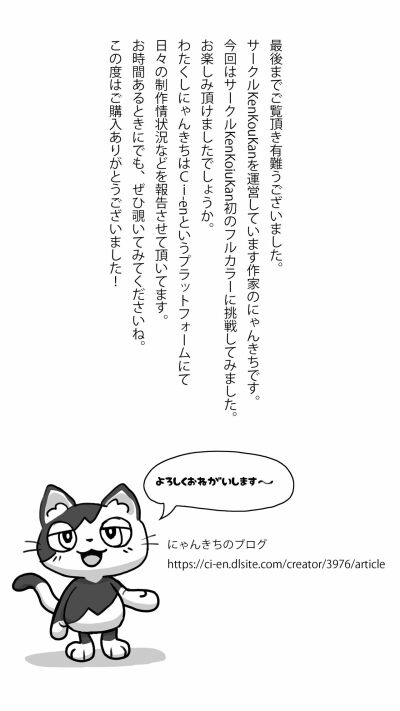 最後までご覧頂き有難うございました。
サークルKenKouKanを運営しています作家のにゃんきちです。
今回はサークルKenKoiuKan初のフルカラーに挑戦してみました。
お楽しみ頂けましたでしょうか。
わたくしにゃんきちはCi-enというプラットフォームにて
日々の制作情状況などを報告させて頂いてます。
お時間あるときにでも、ぜひ覗いてみてくださいね。
この度はご購入ありがとうございました！
よろしくおねがいします〜
にゃんきちのブログ
https://ci-en.dlsite.com/creator/3976/article